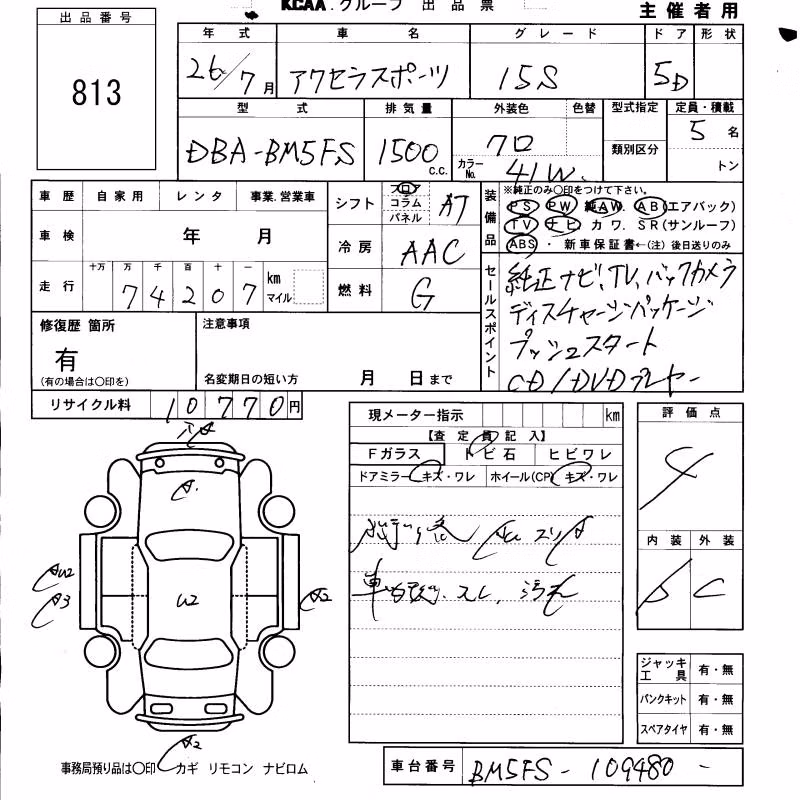 KCAA.グループ 出品票
主催者用
出品番号
813
年式 車名 グレード ドア 形状
26/7月 アクセラスポーツ 15S 5D
型式 排気量 外装色 色替 型式指定 定員・積載
DBA-BM5FS 1500 c.c. クロ 類別区分 5名
カラーNo. 41W トン
車歴 自家用 レンタ 事業.営業車
シフト フロア コラム パネル AT
装備品 ※純正のみ○印をつけて下さい。
PS PW 純AW. AB(エアバック)
TV ナビ カワ. SR(サンルーフ)
ABS ・ 新車保証書←(注) 後日送りのみ
車検 年 月
冷房 AAC
走行 十万 万 千 百 十 一
74207 km マイル
燃料 G
セールスポイント
純正ナビ、TV、バックカメラ
ディスチャージパッケージ
プッシュスタート
CD/DVDプレヤー
修復歴 箇所
有
(有の場合は○印を)
注意事項
名変期日の短い方 月 日まで
リサイクル料 10770円
現メーター指示 km
【査定員記入】
Fガラス トビ石 ヒビワレ
ドアミラー キズ・ワレ ホイール(CP) キズ・ワレ
評価点
4
内装 外装
C
A1
U2
A3
A2
ジャッキ工具 有・無
パンクキット 有・無
スペアタイヤ 有・無
事務局預り品は○印 カギ リモコン ナビロム
車台番号 BM5FS - 109480 -